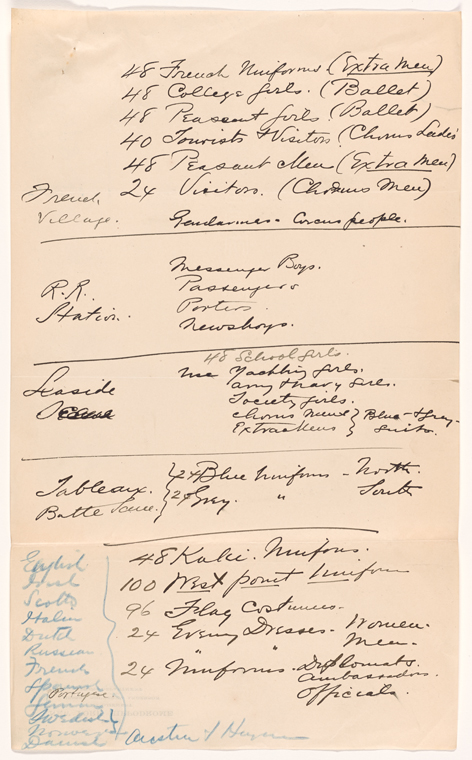 48 French Uniforms (Extra Men)
48 College Girls. (Ballet)
48 Peasant Girls (Ballet)
40 Tourists & Visitors (Chorus Ladies
48 Peasant Men (Extra Men)
24 Visitors. (Chorus Men)
French
Village.
Gendarmes - Circus people.
R.R.
Station.
Messenger Boys.
Passengers
Porters
Newsboys.
48 School girls.
Seaside
use Yachting girls.
army & navy girls.
Society girls.
chorus men
Extra men
} Blue & Grey
suits.
Tableaux.
Battle Scene.
24 Blue Uniforms - North.
24 Grey. " South
48 Kaki. Uniforms.
100 West point Uniform
96 Flag Costumes.
24 Evening Dresses - Women.
Men.
24 "Uniforms" - Diplomats.
Ambassadors.
Officials.
English
Irish
Scotch
Italian
Dutch
Russian
French
Spanish
Portuguese
German
Swedish
Norwegian
Danish